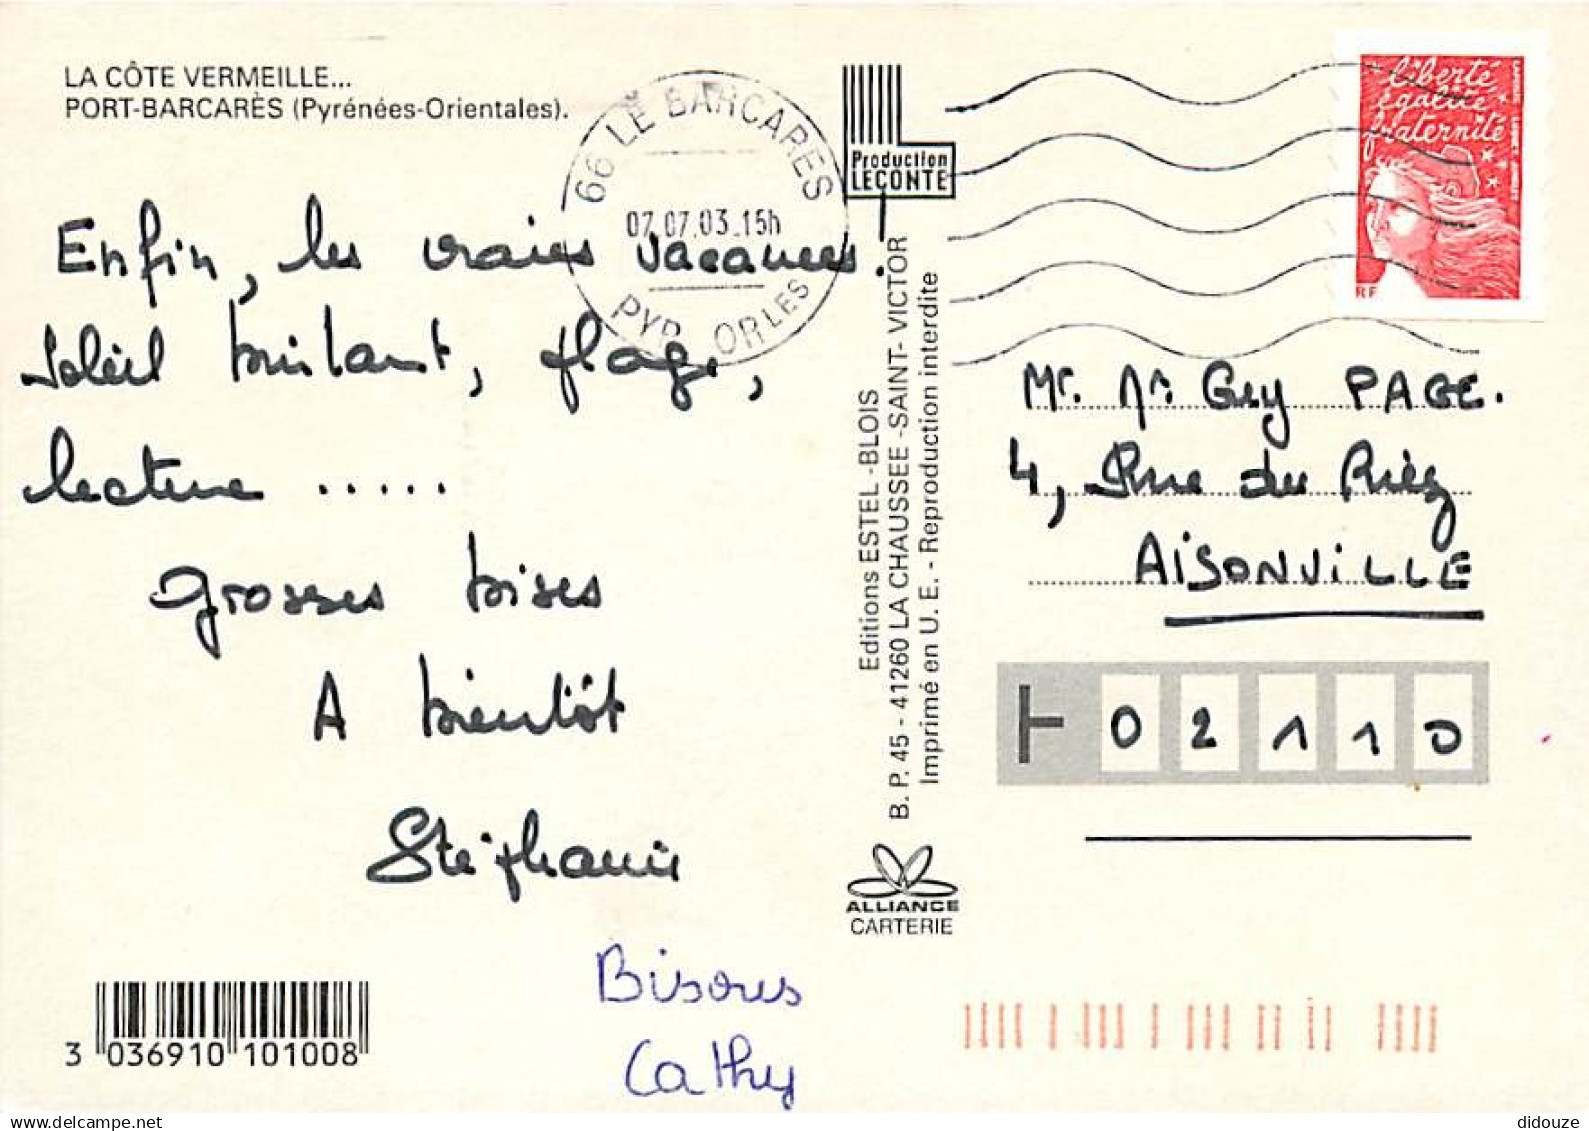 LA CÔTE VERMEILLE...
PORT-BARCARÈS (Pyrénées-Orientales).
66 LE BARCARES
07.07.03.15h
PYR. ORLES
Enfin, les vraies vacances!
Soleil brillant, plage,
lecture .....
Grosses bises
A bientôt
Stéphanie
Bisous
Cathy
3 036910 101008
Production
LECONTE
Editions ESTEL -BLOIS
B. P. 45 - 41260 LA CHAUSSEE -SAINT- VICTOR
Imprimé en U. E. - Reproduction interdite
ALLIANCE
CARTERIE
liberté
égalité
fraternité
RF
Mr. Guy PAGE.
4, Rue du Riez
AISONVILLE
02110
delcampe.net
didouze